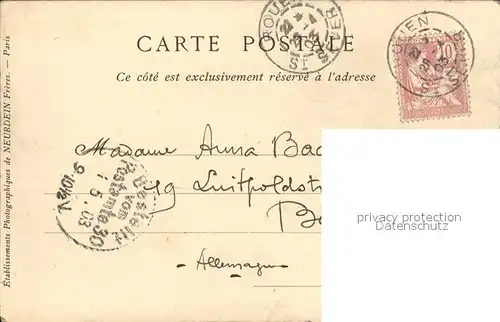 CARTE POSTALE
Ce côté est exclusivement réservé à l'adresse
Établissements Photographiques de NEURDEIN Frères. — Paris
ROUEN
Madame Anna Bac
19 Luitpoldst
Allemagne
Bestellt
vom
Postamte 30
1 5. 03
9-10½V
privacy protection
Datenschutz